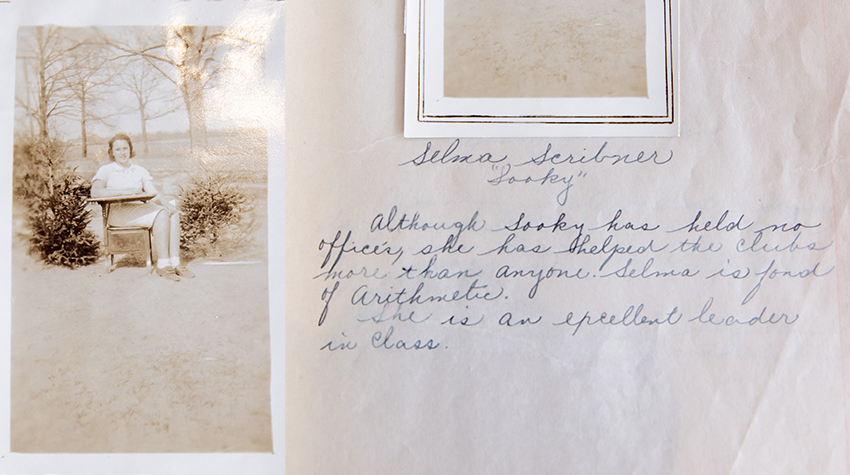 Selma Scribner
"Sooky"
Although Sooky has held no
offices, she has helped the clubs
more than anyone. Selma is fond
of Arithmetic.
She is an excellent leader
in Class.